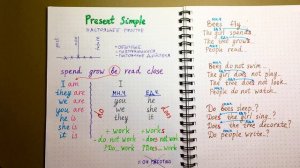 Present Simple
НАСТОЯЩЕЕ ПРОСТОЕ
spend grow (be) read close
I am
they are
we are
you are
he is
she is
it is
МН.Ч ЕД.Ч
you he
we she
they it
do
+ work + works
- do not work - does not work
? Do... work ? Does... work
Bees fly.
The girl spends
The tree grows
People read
Bees do not swim.
The girl does not play.
The tree does not look.
People do not watch.
Do bees sleep?
Does the girl sing?
Does the tree decorate?
Do people write?